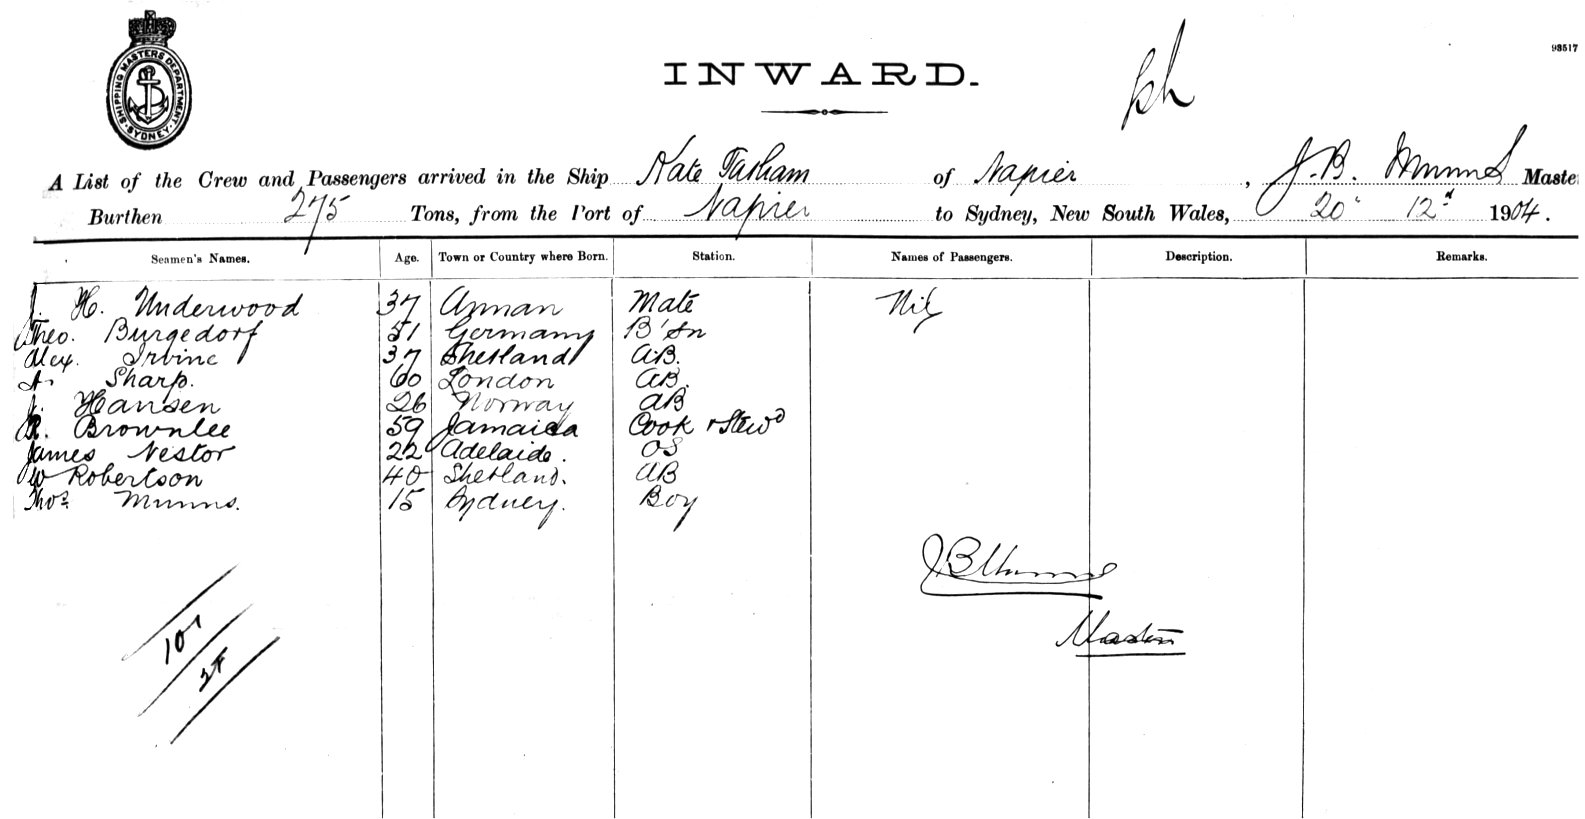 SHIPPING MASTERS DEPARTMENT
SYDNEY
93517
INWARD.
A List of the Crew and Passengers arrived in the Ship Kate Tatham of Napier, J. B. Munns Master
Burthen 275 Tons, from the Port of Napier to Sydney, New South Wales, 20 12 1904.
Seamen's Names. Age. Town or Country where Born. Station. Names of Passengers. Description. Remarks.
J. H. Underwood 37 Annan Mate Nil
Theo. Burgedorf 51 Germany B'Sn
Alex. Irvine 37 Shetland A.B.
A. Sharp. 60 London AB.
J. Hansen 26 Norway AB
R. Brownlee 59 Jamaica Cook & Stewd
James Nestor 22 Adelaide. OS
W Robertson 40 Shetland. AB
Thos. Munns. 15 Sydney. Boy
J B Munns
Master